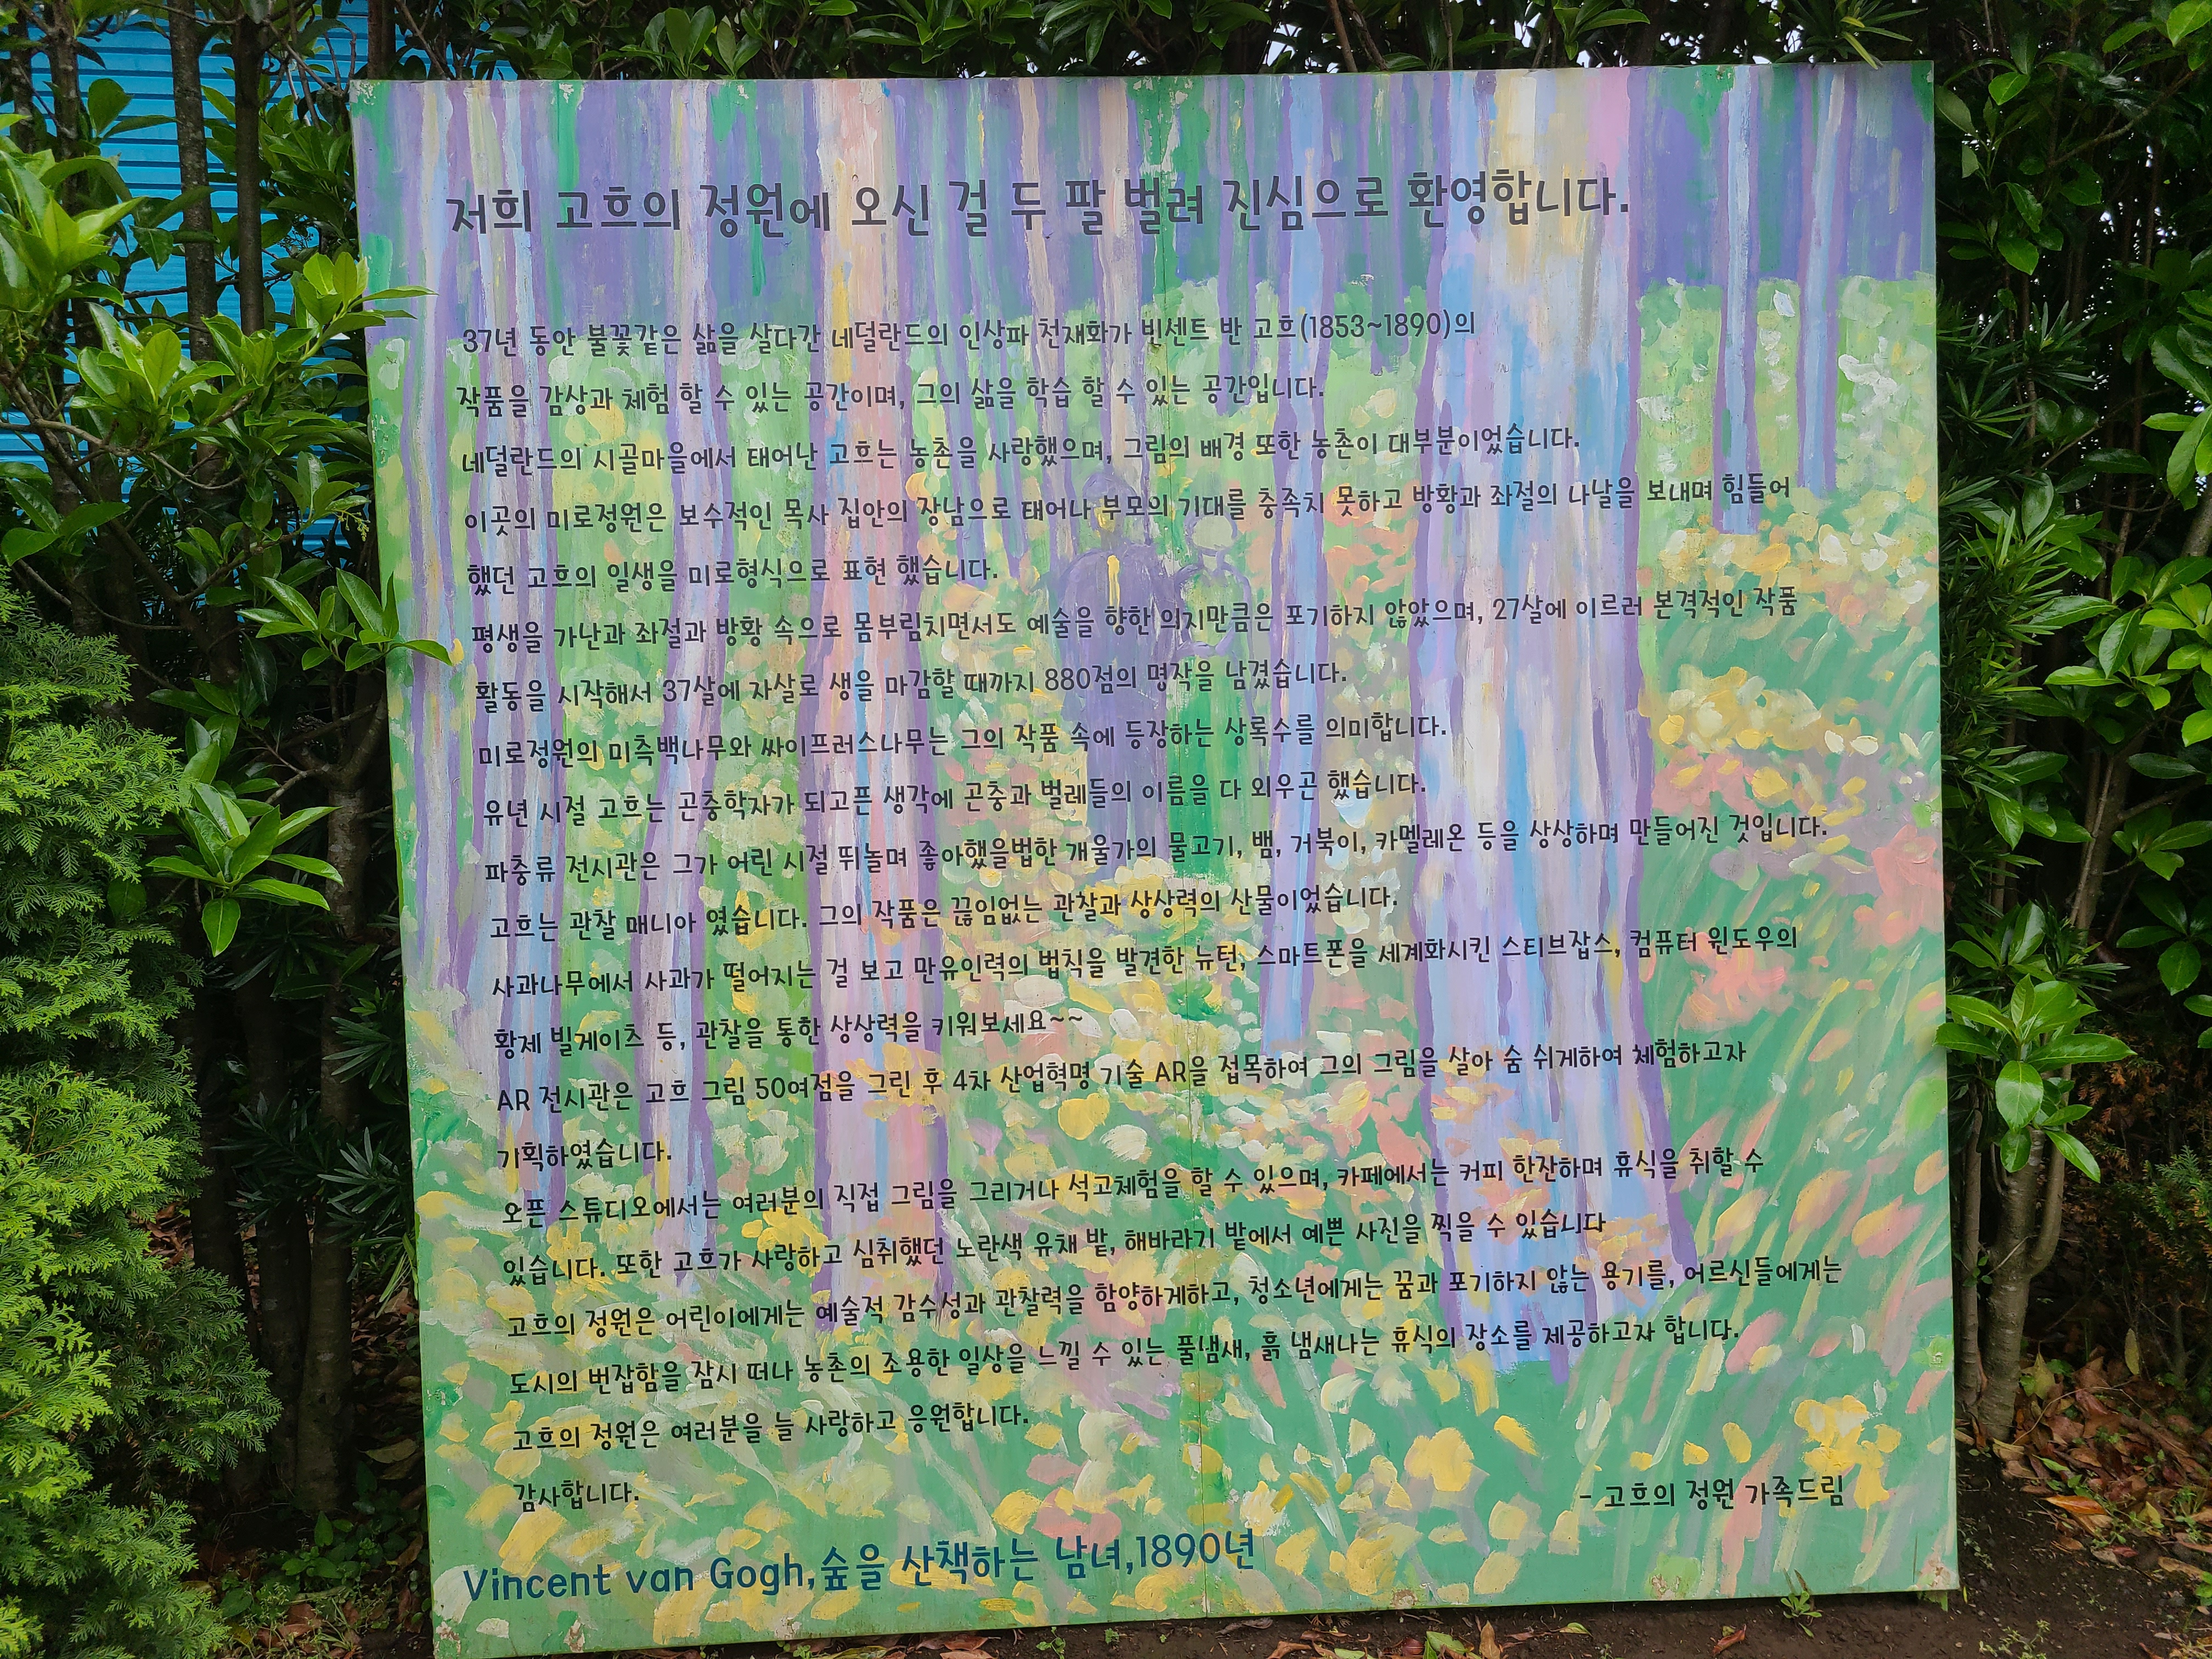 저희 고흐의 정원에 오신 걸 두 팔 벌려 진심으로 환영합니다.
37년 동안 불꽃같은 삶을 살다간 네덜란드의 인상파 천재화가 빈센트 반 고흐(1853~1890)의
작품을 감상과 체험 할 수 있는 공간이며, 그의 삶을 학습 할 수 있는 공간입니다.
네덜란드의 시골마을에서 태어난 고흐는 농촌을 사랑했으며, 그림의 배경 또한 농촌이 대부분이었습니다.
이곳의 미로정원은 보수적인 목사 집안의 장남으로 태어나 부모의 기대를 충족치 못하고 방황과 좌절의 나날을 보내며 힘들어
했던 고흐의 일생을 미로형식으로 표현 했습니다.
평생을 가난과 좌절과 방황 속으로 몸부림치면서도 예술을 향한 의지만큼은 포기하지 않았으며, 27살에 이르러 본격적인 작품
활동을 시작해서 37살에 자살로 생을 마감할 때까지 880점의 명작을 남겼습니다.
미로정원의 미측백나무와 싸이프러스나무는 그의 작품 속에 등장하는 상록수를 의미합니다.
유년 시절 고흐는 곤충학자가 되고픈 생각에 곤충과 벌레들의 이름을 다 외우곤 했습니다.
파충류 전시관은 그가 어린 시절 뛰놀며 좋아했을법한 개울가의 물고기, 뱀, 거북이, 카멜레온 등을 상상하며 만들어진 것입니다.
고흐는 관찰 매니아 였습니다. 그의 작품은 끊임없는 관찰과 상상력의 산물이었습니다.
사과나무에서 사과가 떨어지는 걸 보고 만유인력의 법칙을 발견한 뉴턴, 스마트폰을 세계화시킨 스티브잡스, 컴퓨터 윈도우의
황제 빌게이츠 등, 관찰을 통한 상상력을 키워보세요~~
AR 전시관은 고흐 그림 50여점을 그린 후 4차 산업혁명 기술 AR을 접목하여 그의 그림을 살아 숨 쉬게하여 체험하고자
기획하였습니다.
오픈 스튜디오에서는 여러분의 직접 그림을 그리거나 석고체험을 할 수 있으며, 카페에서는 커피 한잔하며 휴식을 취할 수
있습니다. 또한 고흐가 사랑하고 심취했던 노란색 유채 밭, 해바라기 밭에서 예쁜 사진을 찍을 수 있습니다
고흐의 정원은 어린이에게는 예술적 감수성과 관찰력을 함양하게하고, 청소년에게는 꿈과 포기하지 않는 용기를, 어르신들에게는
도시의 번잡함을 잠시 떠나 농촌의 조용한 일상을 느낄 수 있는 풀냄새, 흙 냄새나는 휴식의 장소를 제공하고자 합니다.
고흐의 정원은 여러분을 늘 사랑하고 응원합니다.
감사합니다.
- 고흐의 정원 가족드림
Vincent van Gogh,숲을 산책하는 남녀,1890년